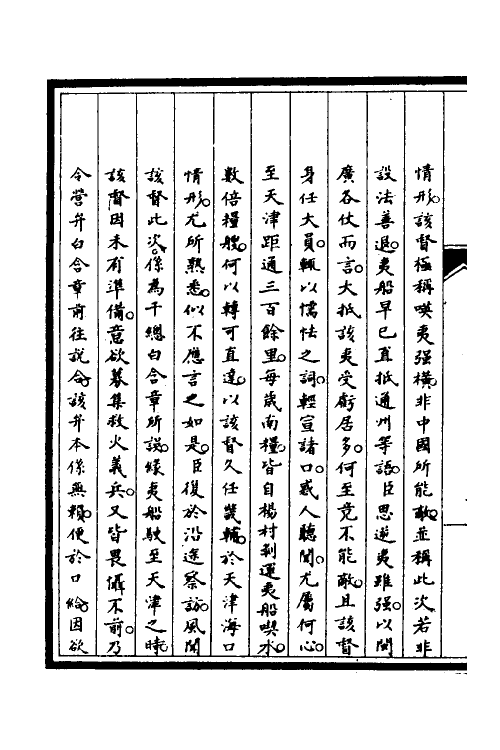 情形。該督極稱嘆夷强橫。非中國所能敵。並稱此次若非
設法善退。夷船早已直抵通州等語。臣思逆夷雖强。以閩
廣各仗而言。大抵該夷受虧居多。何至竟不能敵。且該督
身任大員。輒以懦怯之詞。輕宣諸口。惑人聽聞。尤屬何心。
至天津距通三百餘里。每歲南糧。皆自楊村剝運。夷船喫水。
數倍糧艘。何以轉可直達。以該督久任畿輔。於天津海口
情形。尤所熟悉。似不應言之如是。臣復於沿途察訪。風聞
該督此次。係為千總白含章所誤。緣夷船駛至天津之時。
該督因未有準備。意欲募集救火義兵。又皆畏懾不前。乃
令營弁白含章前往說合。該弁本係無賴。便於口給。因欲